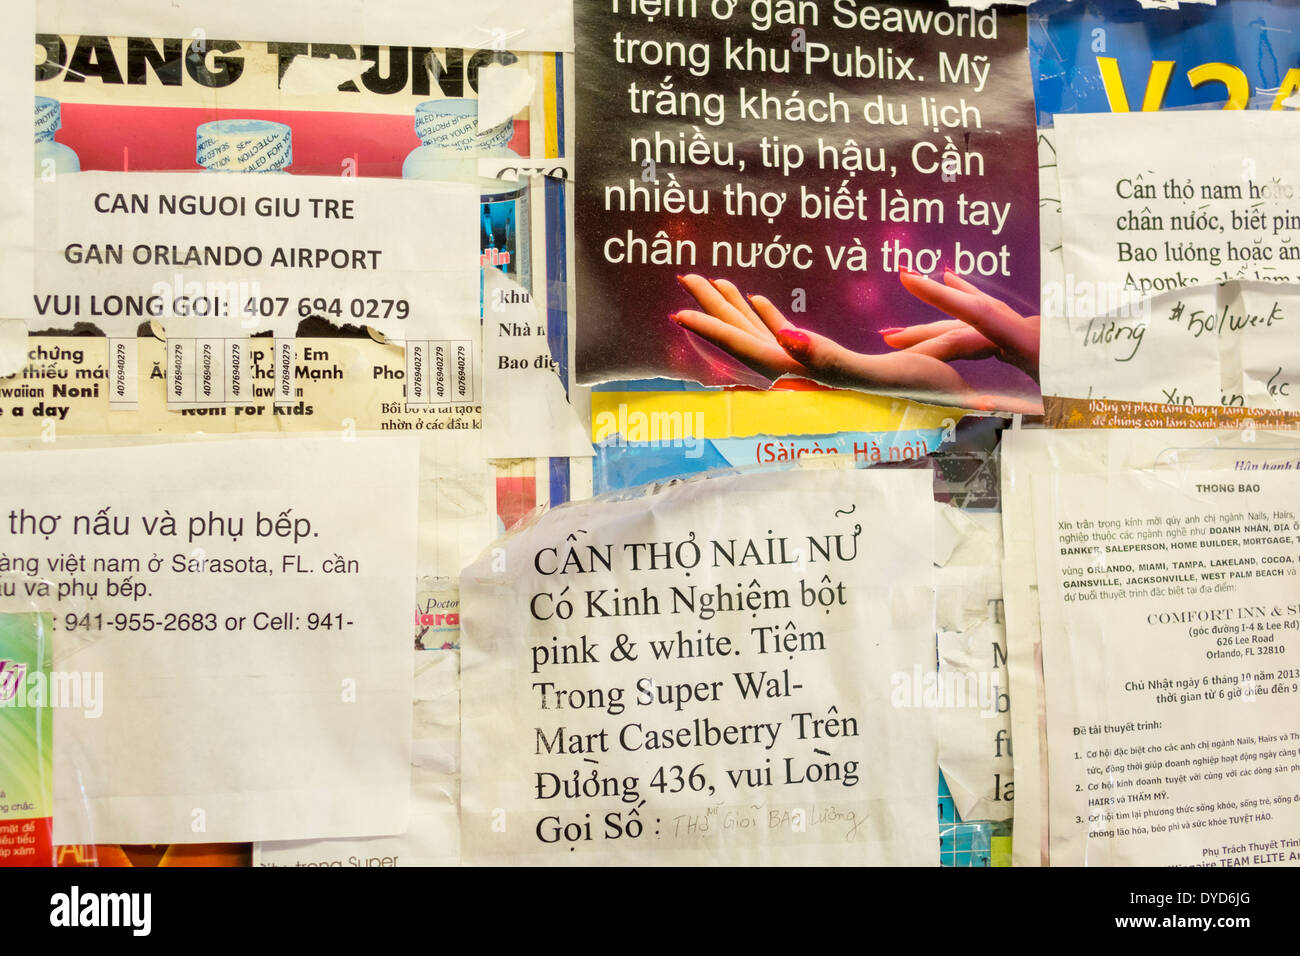 DANG TRUNG
CAN NGUOI GIU TRE
GAN ORLANDO AIRPORT
VUI LONG GOI: 407 694 0279
4076940279
4076940279
4076940279
4076940279
4076940279
4076940279
4076940279
4076940279
chứng
thiếu máu
Noni
a day
Em
Khỏe Mạnh
Noni For Kids
Bồi bổ và tái tạo c
nhờn ở các đầu kh
khu
Nhà n
Bao điệ
Tiệm ở gần Seaworld
trong khu Publix. Mỹ
trắng khách du lịch
nhiều, tip hậu, Cần
nhiều thợ biết làm tay
chân nước và thợ bot
Cần thợ nam hoặc
chân nước, biết pin
Bao lương hoặc ăn
Aponka
lương $50/week
Xin
(Sàigòn, Hà nội)
thợ nấu và phụ bếp.
àng việt nam ở Sarasota, FL. cần
ấu và phụ bếp.
: 941-955-2683 or Cell: 941-
Doctor
CẦN THỢ NAIL NỮ
Có Kinh Nghiệm bột
pink & white. Tiệm
Trong Super Wal-
Mart Caselberry Trên
Đường 436, vui Lòng
Gọi Số : THỢ MĨ Giỏi BAO Lương
Quý vị phát tâm
để chúng con làm danh sách
Hân hạnh k
THONG BAO
Xin trân trọng kính mời qúy anh chị ngành Nails, Hairs,
nghiệp thuộc các ngành nghề như DOANH NHÂN, ĐỊA Ố
BANKER, SALEPERSON, HOME BUILDER, MORTGAGE, T
vùng ORLANDO, MIAMI, TAMPA, LAKELAND, COCOA,
GAINSVILLE, JACKSONVILLE, WEST PALM BEACH và
dự buổi thuyết trình đặc biệt tại địa điểm:
COMFORT INN & S
(góc đường I-4 & Lee Rd)
626 Lee Road
Orlando, FL 32810
Chủ Nhật ngày 6 tháng 10 năm 2013
thời gian từ 6 giờ chiều đến 9
Đề tài thuyết trình:
1. Cơ hội đặc biệt cho các anh chị ngành Nails, Hairs và Th
tức, đồng thời giúp doanh nghiệp hoạt động ngày càng t
2. Cơ hội kinh doanh tuyệt vời cùng với các dòng sản ph
HAIRS và THẨM MỸ.
3. Cơ hội tìm lại phương thức sống khỏe, sống trẻ, sống đ
chống lão hóa, béo phì và sức khỏe TUYỆT HẢO.
Phụ Trách Thuyết Trình
TEAM ELITE A
City trong Super
alamy
Image ID: DYD6JG
www.alamy.com